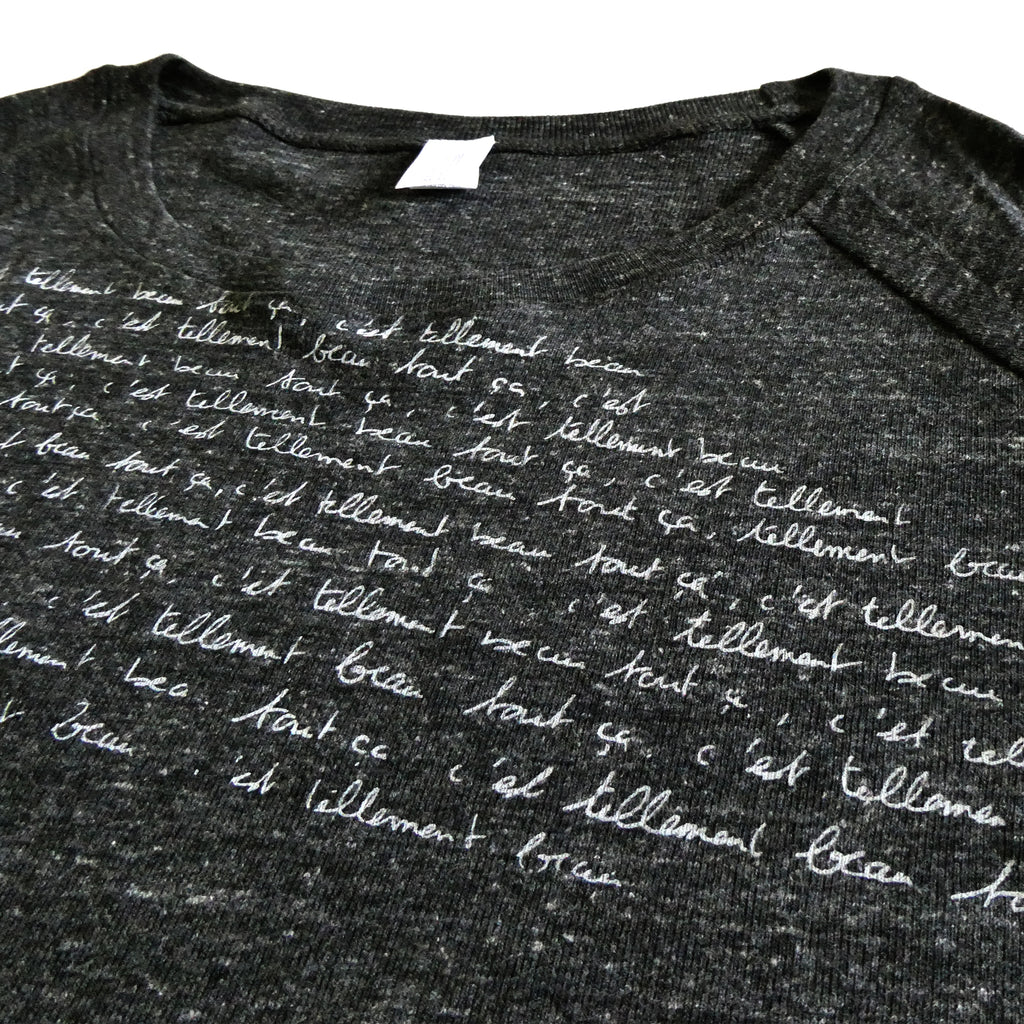 tellement beau tout ça, c'est tellement beau
ça, c'est tellement beau tout ça, c'est
tellement beau tout ça, c'est tellement beau
ça, c'est tellement beau tout ça, c'est tellement
tout ça c'est tellement beau tout ça, tellement beau
beau tout ça, c'est tellement beau tout ça, c'est tellement
c'est tellement beau tout ça c'est tellement beau
tout ça, c'est tellement beau tout ça, c'est tel
c'est tellement beau tout ça, c'est tellemen
llement bea tout ça c'est tellement beau to
beau 'est tellement beau